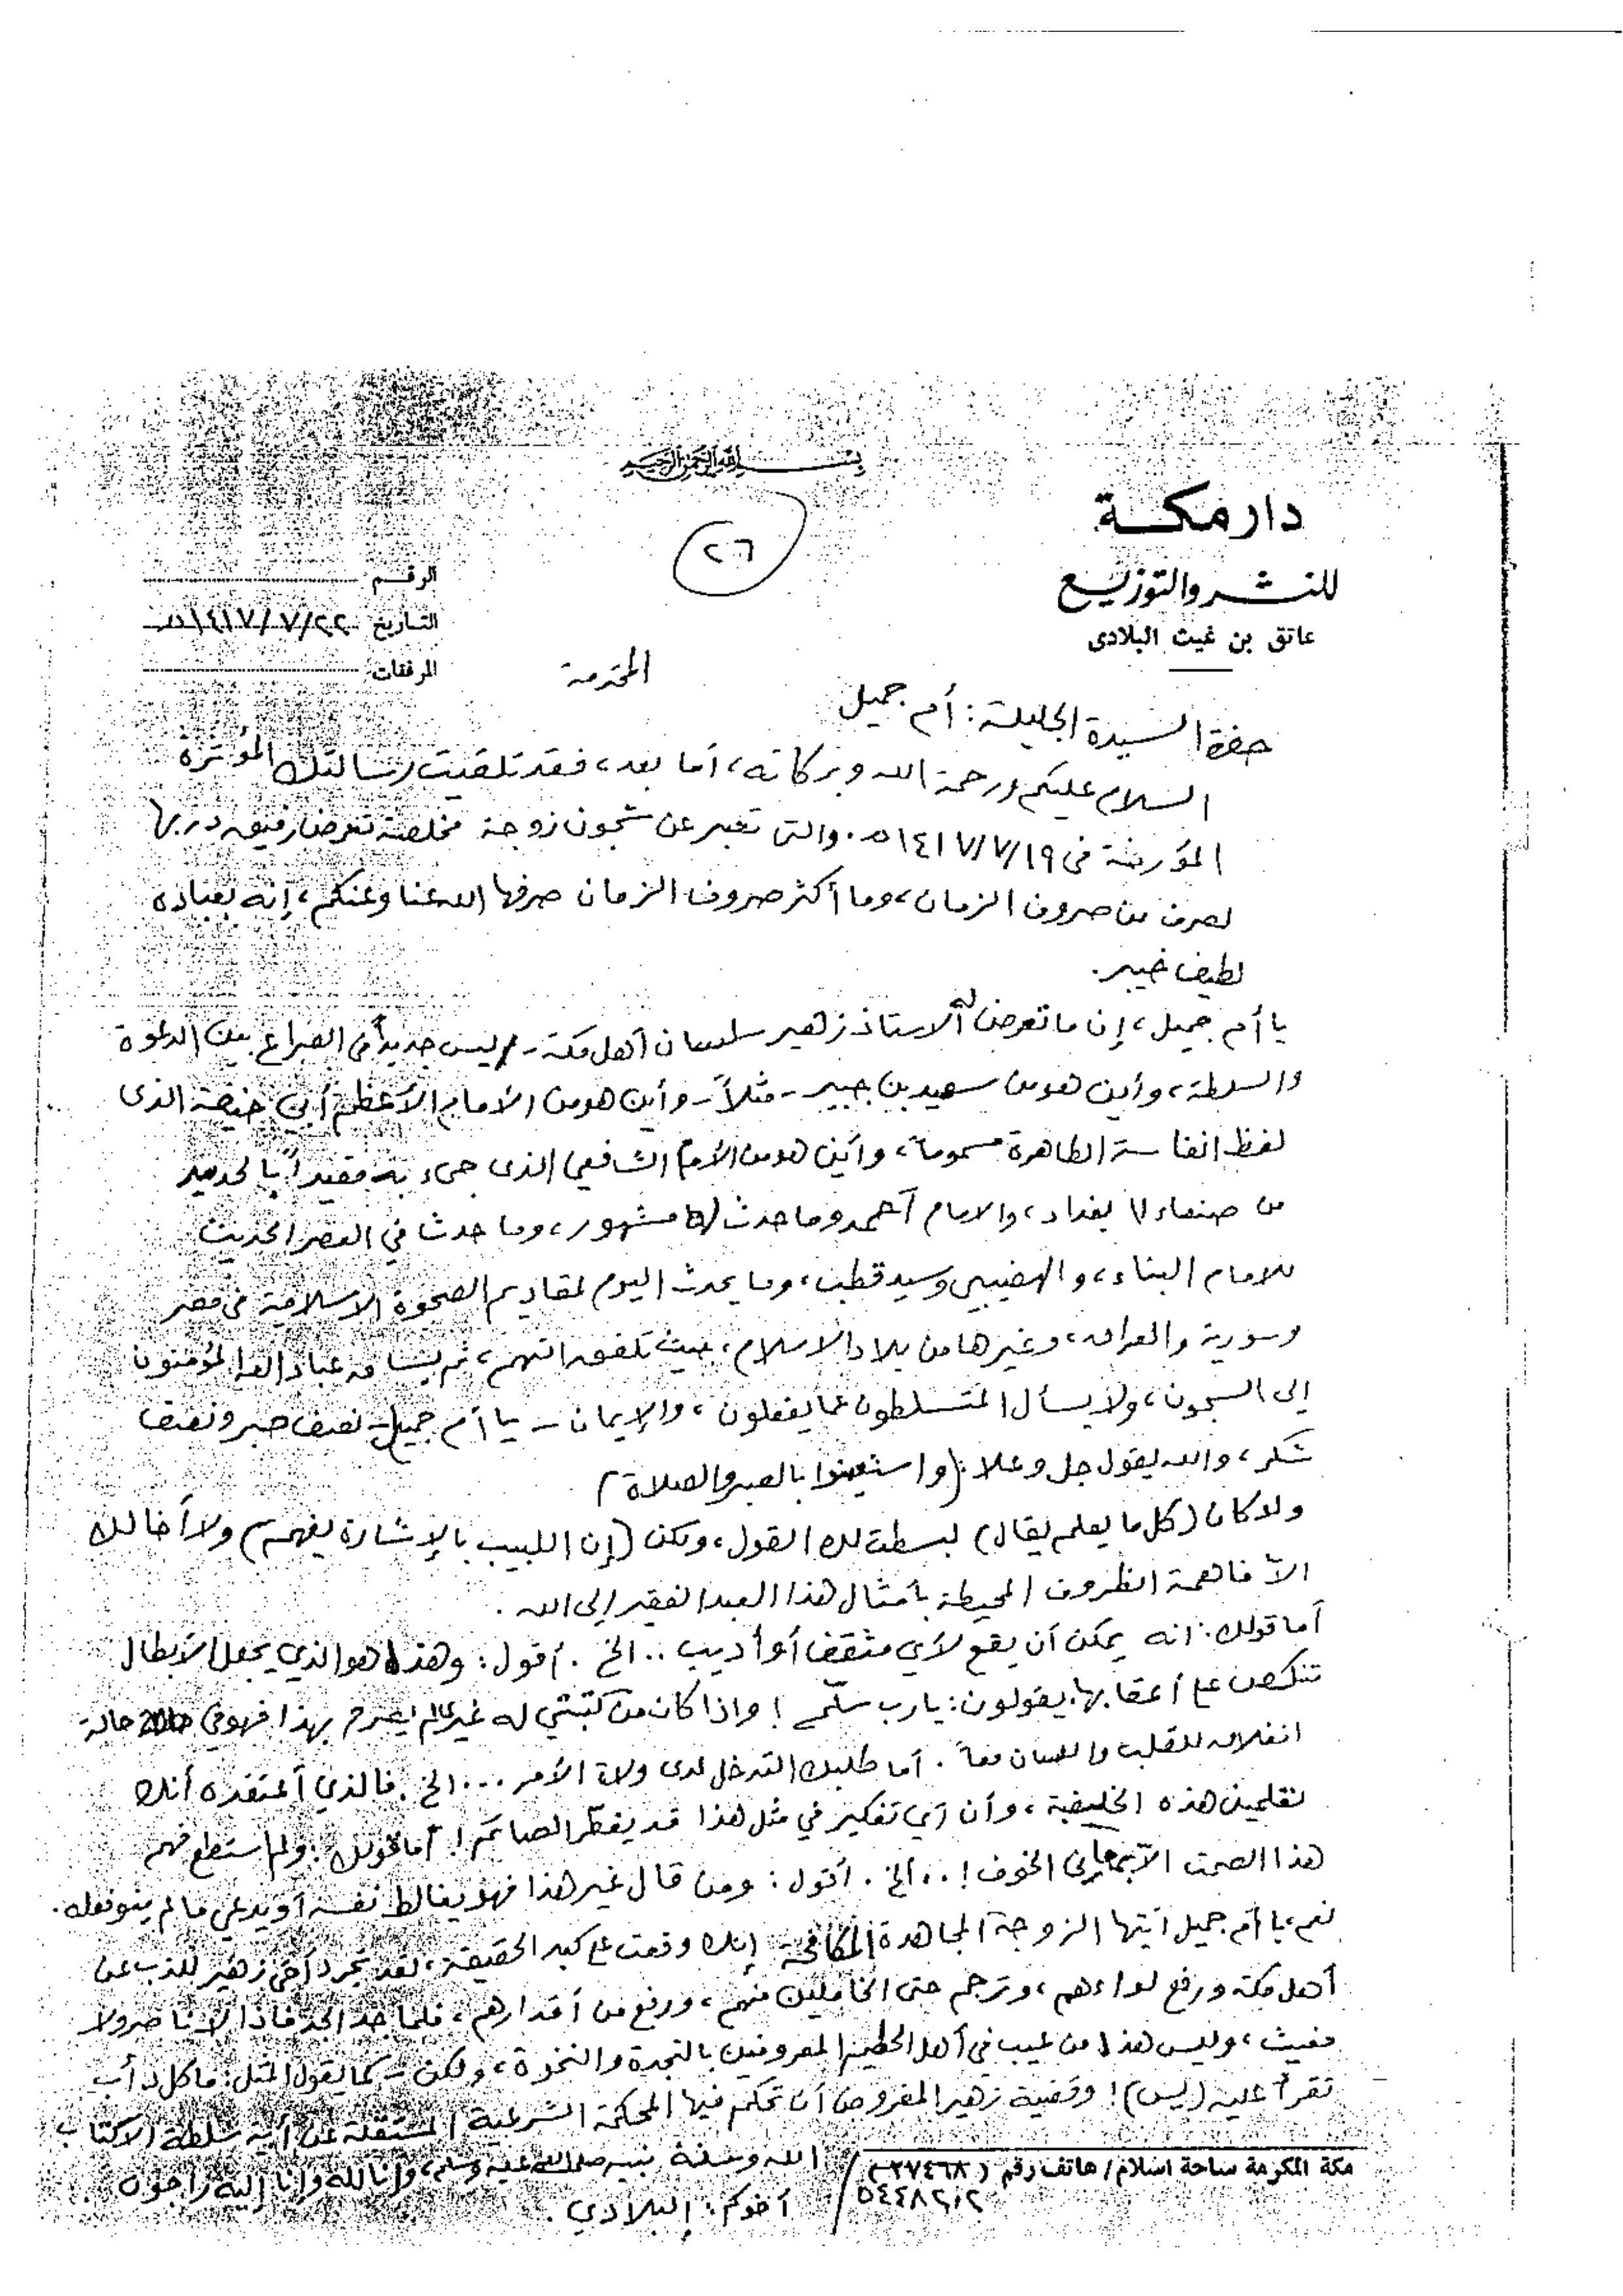 بسم الله الرحمن الرحيم
دار مكة
للنشر والتوزيع
عاتق بن غيث البلادى
٢٦
الرقم
التاريخ ١٤١٧/٧/٢٢هـ
المرفقات
حضرة السيدة الجليلة: أم جميل المحترمة
السلام عليكم ورحمة الله وبركاته، أما بعد، فقد تلقيت رسالتك المؤثرة
المؤرخة في ١٤١٧/٧/١٩هـ. والتي تعبر عن شجون زوجة مخلصة تعرض رفيق دربها
لصرف من صروف الزمان، وما أكثر صروف الزمان صرفها الله عنا وعنكم، إنه بعباده
لطيف خبير.
يا أم جميل، إن ما تعرض له الاستاذ زهير سليمان أهل مكة - ليس جديداً في الصراع بين الدعوة
والسلطة، وأين هو من سعيد بن جبير - مثلاً - وأين هو من الأمام الأعظم أبي حنيفة الذى
لفظ انفاسه الطاهرة مسموماً، وأين هو من الأمام الشافعي الذى جيء به مقيداً بالحديد
من صنعاء إلى بغداد، والامام أحمد وما حدث له مشهور، وما حدث في العصر الحديث
للامام البناء، والهضيبي وسيد قطب، وما يحدث اليوم لمقاديم الصحوة الاسلامية في مصر
وسورية والعراق، وغيرها من بلاد الاسلام، حيث تلفق التهم، ثم يساق عباد الله المؤمنون
إلى السجون، ولا يسأل المتسلطون عما يفعلون، والإيمان - يا أم جميل - نصف صبر ونصف
شكر، والله يقول جل وعلا: (واستعينوا بالصبر والصلاة)
ولو كان (كل ما يعلم يقال) لبسطت لك القول، ولكن (إن اللبيب بالإشارة يفهم) ولا أخالك
الاّ فاهمة الظروف المحيطة بأمثال هذا العبد الفقير إلى الله.
أما قولك: انه يمكن أن يقع لأي مثقف أو أديب .. الخ. أقول: وهذا هو الذي يجعل الأبطال
تنكص على أعقابها، يقولون: يارب سلّم! وإذا كان من كتبتي له غيري لم يصرح بهذا فهو في حالة
انغلاق للقلب واللسان معاً. أما طلبك التدخل لدى ولاة الأمر ... الخ. فالذي أعتقده أنك
تعلمين هذه الخليفية، وأن أي تفكير في مثل هذا قد يفطّر الصائم! أما قولك: ولم استطع فهم
هذا الصمت الا بمعاني الخوف! .. الخ. أقول: ومن قال غير هذا فهو يغالط نفسه أو يدعي ما لم ينو فعله.
نعم، يا أم جميل أيتها الزوجة المجاهدة المكافحة إنك وقعت على كبد الحقيقة، لقد تجرد أخي زهير للذب عن
أهل مكة ورفع لواءهم، وترجم حتى الخاملين منهم، ورفع من أقدارهم، فلما جد الجد فاذا لا ناصر ولا
مغيث، وليس هذا من عيب في أهل الحطيم المعروفين بالنجدة والنخوة، ولكن - كما يقول المثل: ما كل دأب
تقرأ عليه (يس)! وقضية زهير المفروض أن تحكم فيها المحكمة الشرعية المستقلة عن أية سلطة الا كتاب
الله وسنة نبيه صلى الله عليه وسلم، وإنا لله وإنا إليه راجعون
أخوكم: البلادي.
مكة المكرمة ساحة اسلام/ هاتف رقم (٢٧٤٦٨)
٥٤٤٨٢٠٢